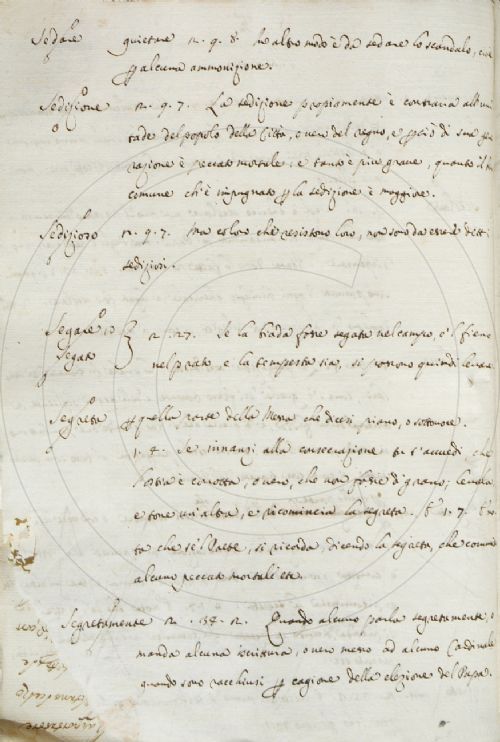 Sedare quietare 2. q. 8. In altro modo è da sedare lo scandalo, cioè
p alcuna ammonizione.
Sedizione 2. q. 7. La sedizione propiamente è contraria all'uni
tade del popolo della Città, o uero del regno, e pciò di sua ge
razione è peccato mortale: e tanto è piue graue, quanto il be
comune ch'è impugnato p la sedizione è maggiore.
Sedizioso 2. q. 7. Ma coloro che resistono loro, non sono da essere detti
sediziosi.
Segare
Segato 2. 1. 27. Se la biada fosse segata nel campo, e 'l fieno
nel prato e la tempesta sia, si possono quindi leuare
Segreta p quella parte della Messa che dicesi piano, o sottuoce.
1. 8. Se innanzi alla consecrazione tu t'auuedi, che
l'ostia è corrotta, o uero, che non fosse di grano, leuala,
e tone un'altra, e ricomincia la segreta. 1. 7.
ta che se 'l Prete, si ricorda, dicendo la segreta, che commise
alcuno peccato mortale etc.
Segretamente 2. 34. 2. Quando alcuno parla segretamente, o
manda alcuna scrittura, o uero messo ad alcuno Cardinale
quando sono racchiusi p cagione della elezione del Papa.